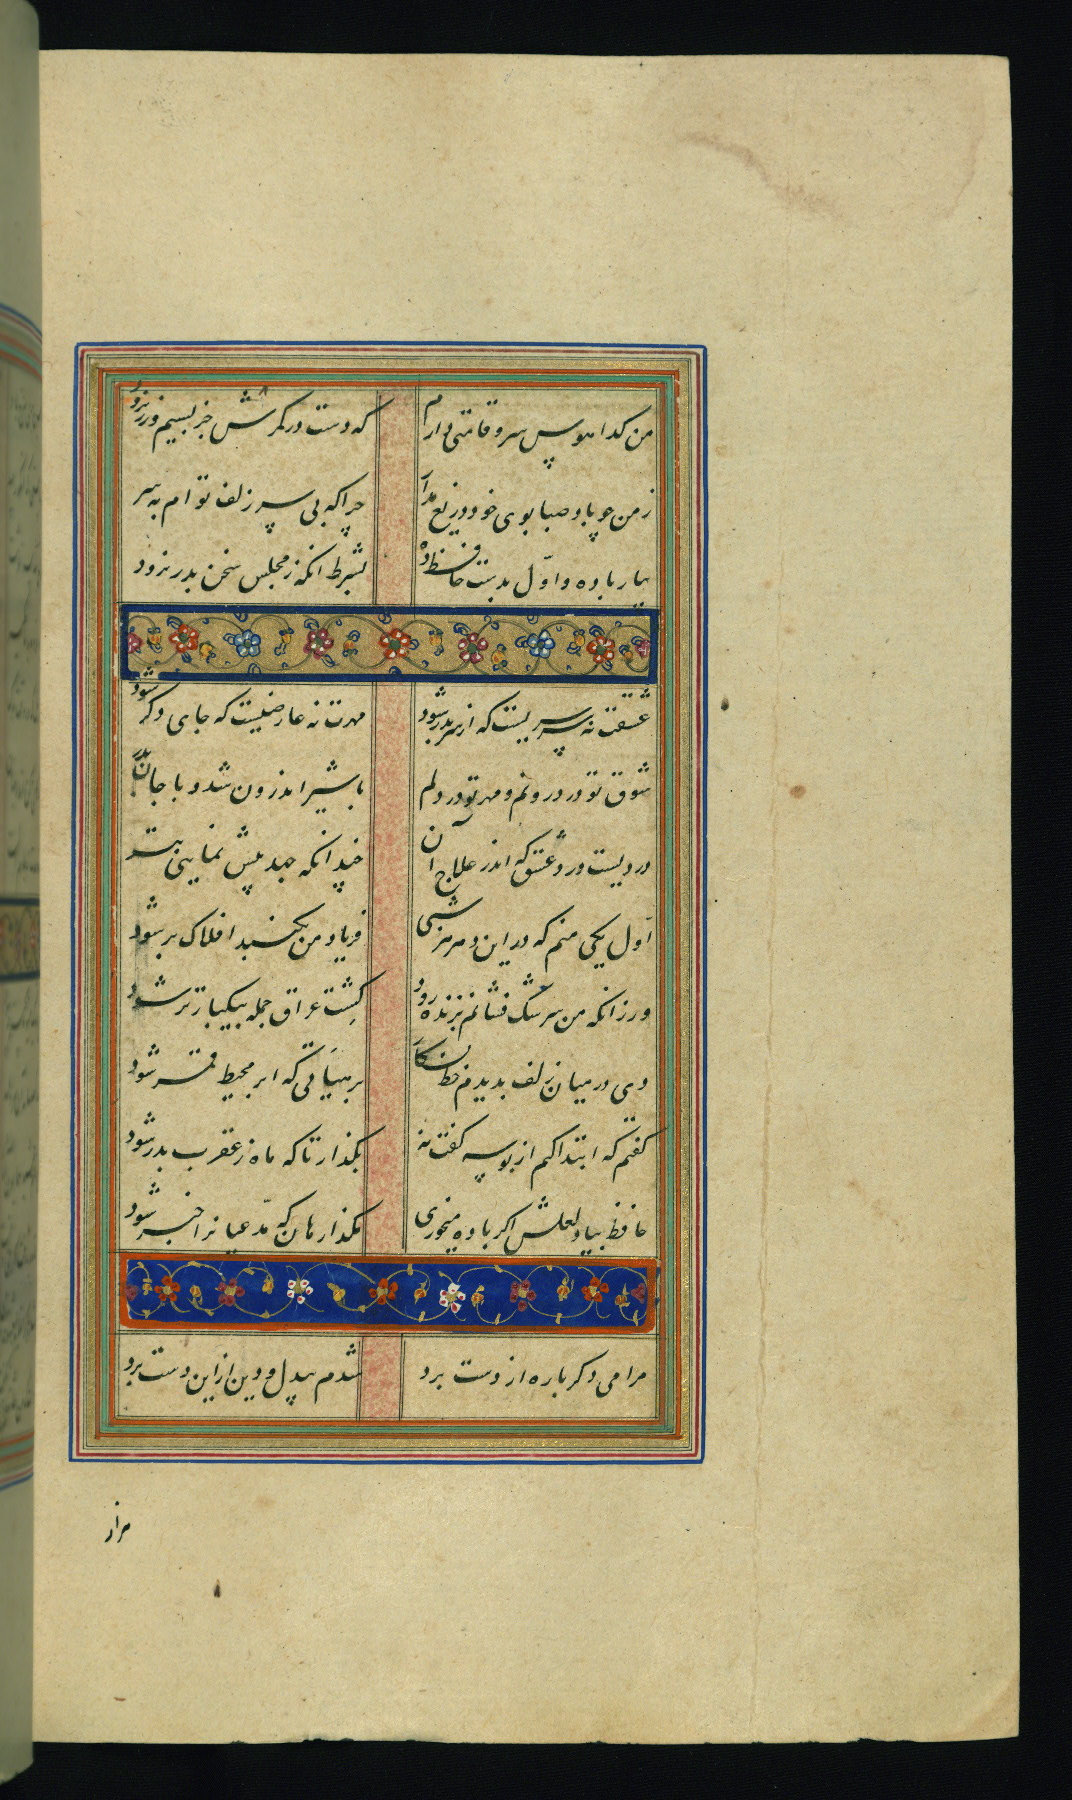 من كدا هوس سرو قامتی دارم که دست در کمرش جز بسیم و زر نرود
ز من چو باد صبا بوی خود دریغ مدار چرا که بی سر زلف توام بسر
بیار باده و اول بدست حافظ ده بشرط انکه ز مجلس سخن بدر نرود
عشقت نه سر سریست که از سر بدر شود مهرت نه عارضیست که جای دکر شود
شوق تو در درونم و مهر تو در دلم با شیر اندرون شد و با جان بدر
دردیست درد عشق که اندر علاج آن چندانکه جهد بیش نمایی بتر
اول یکی منم که درین هر شبی فریاد من بکنبد افلاک بر شود
ور زانکه من سرشک فشانم بزنده رود کشت عراق جمله بیکبار تر شود
دی در میان زلف بدیدم رخ نکار بر هیأتی که ابر محیط قمر شود
کفتم که ابتدا کنم از بوسه کفت نه بکذار تا که ماه ز عقرب بدر شود
حافظ بیاد لعلش اکر باده میخوری مکذار هان که مدعیانرا خبر شود
مرا می دکر باره از دست برد شدم بیدل و دین ازین دست برد
مرا از